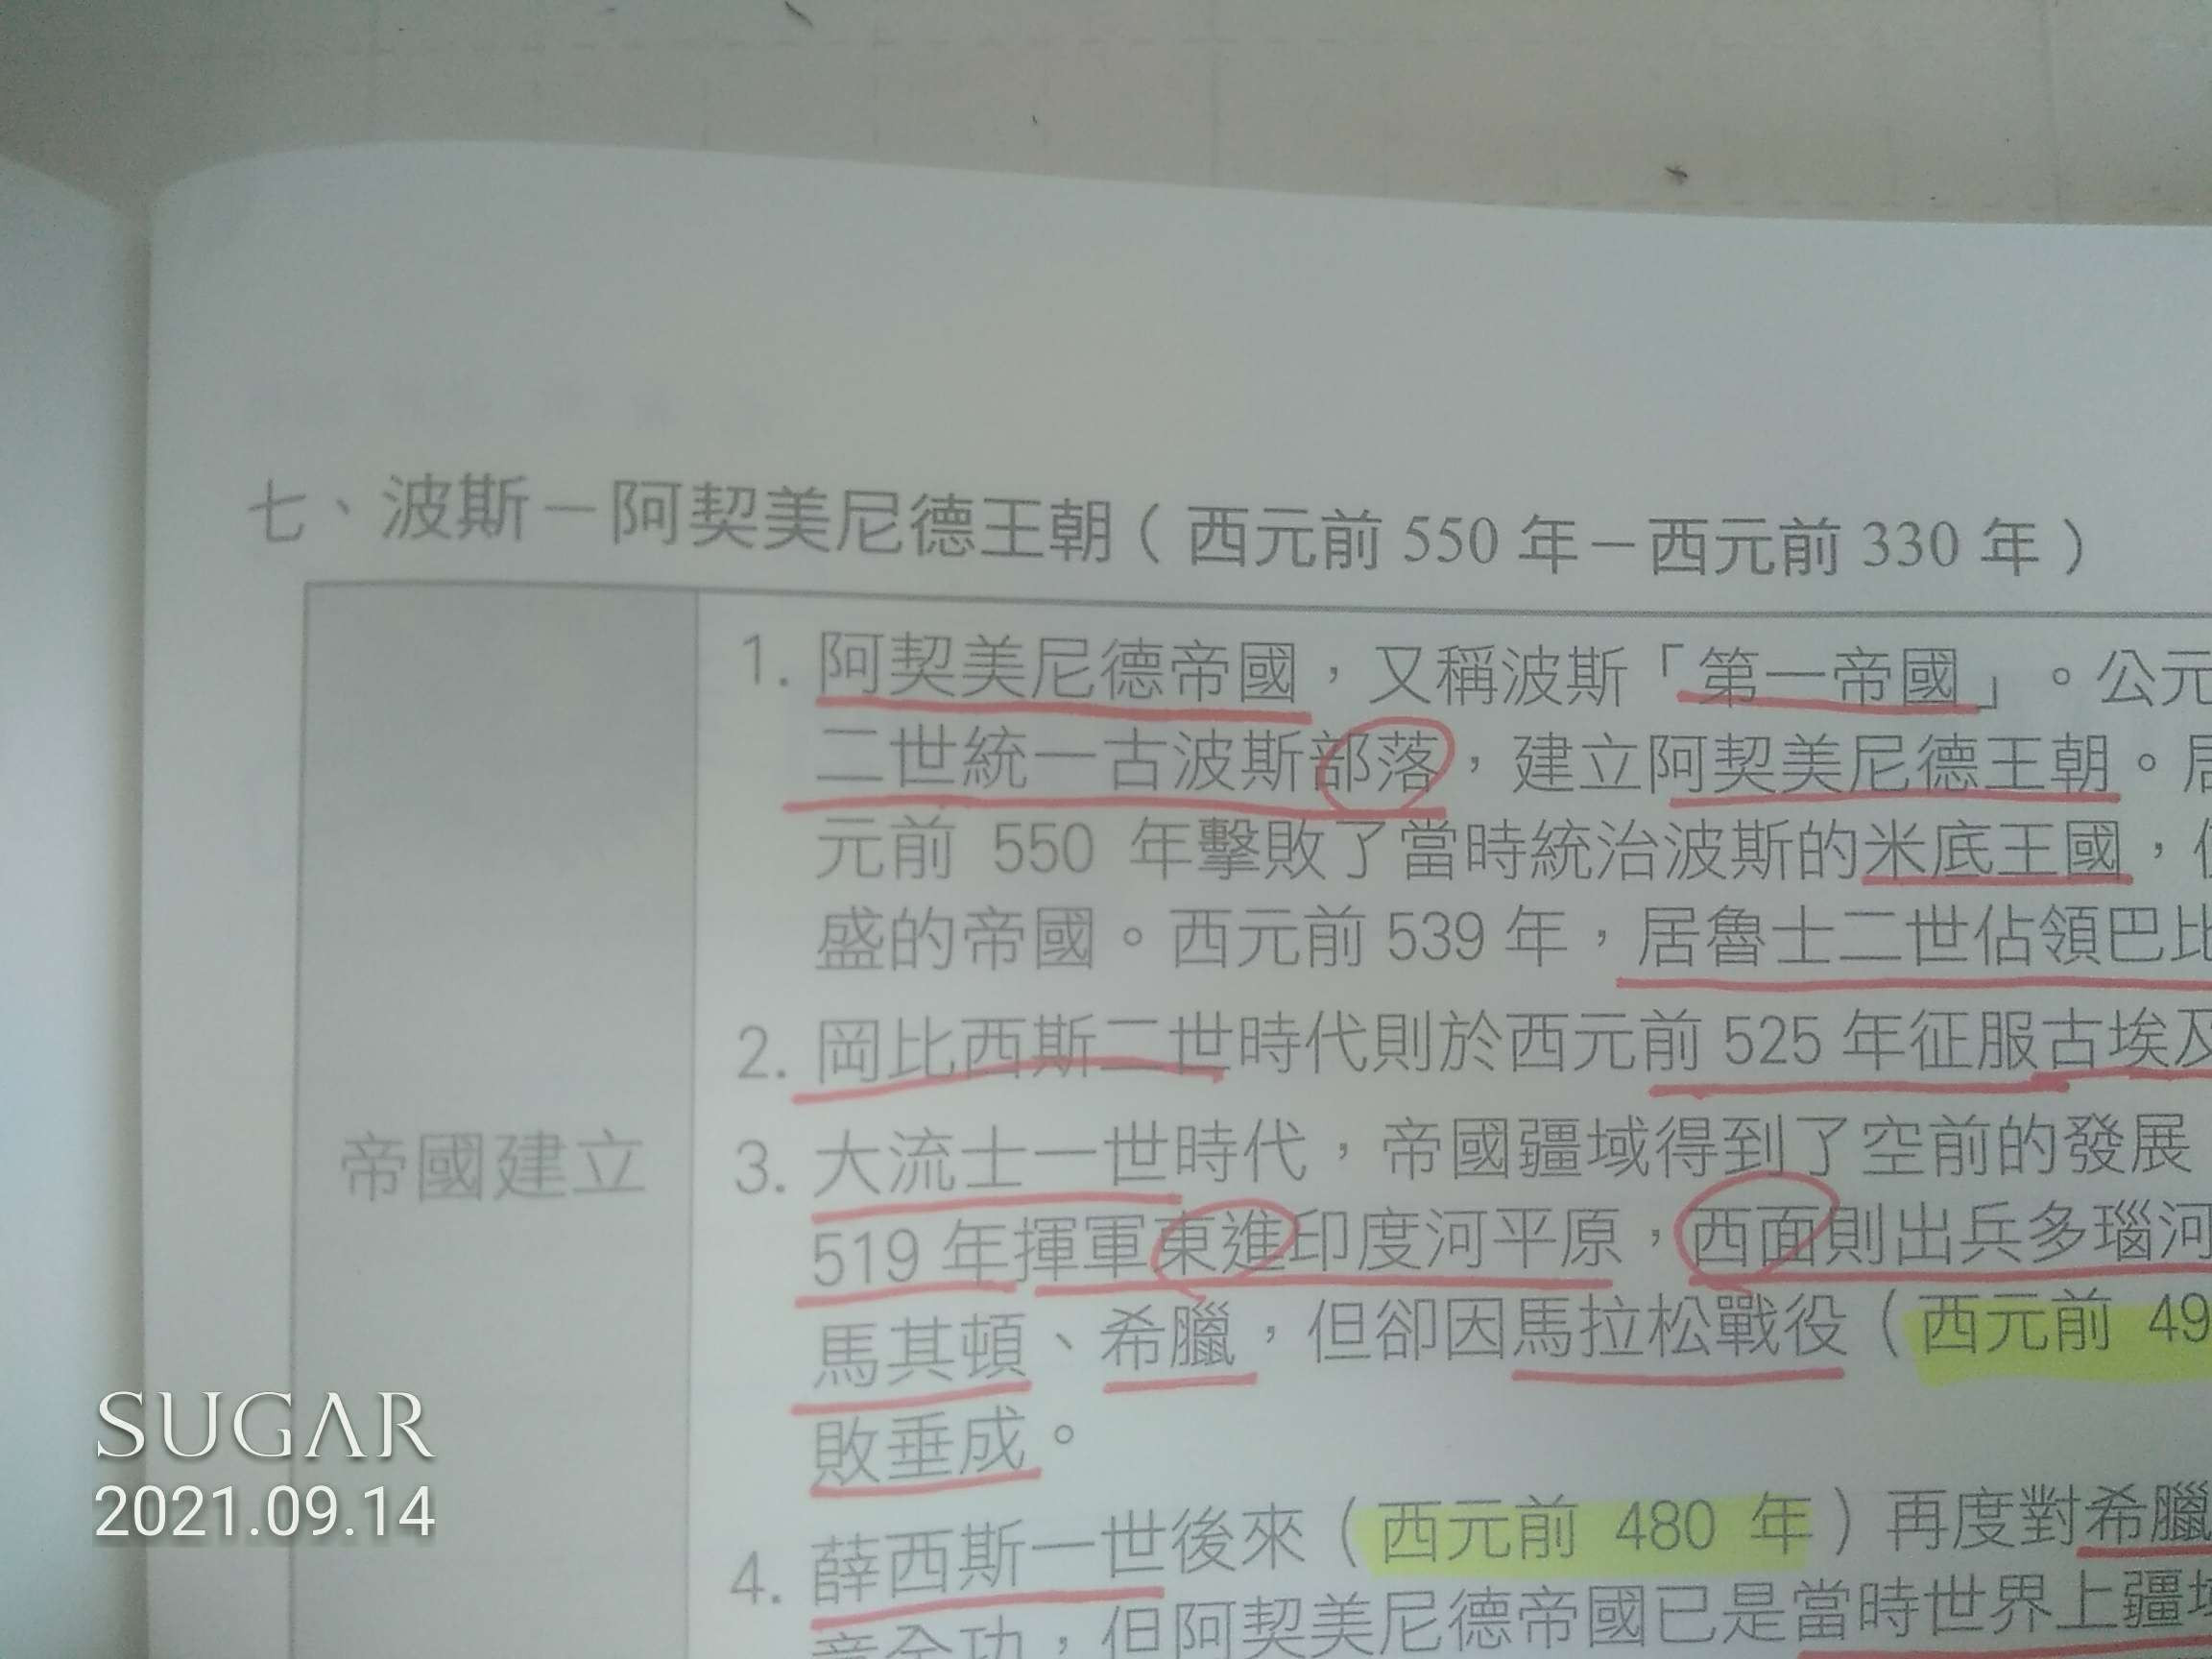 七、波斯－阿契美尼德王朝（西元前 550 年－西元前 330 年）
1. 阿契美尼德帝國，又稱波斯「第一帝國」。公元
二世統一古波斯部落，建立阿契美尼德王朝。居
元前 550 年擊敗了當時統治波斯的米底王國，
盛的帝國。西元前 539 年，居魯士二世佔領巴比
2. 岡比西斯二世時代則於西元前 525 年征服古埃及
帝國建立
3. 大流士一世時代，帝國疆域得到了空前的發展
519 年揮軍東進印度河平原，西面則出兵多瑙河
馬其頓、希臘，但卻因馬拉松戰役（西元前 49
敗垂成。
4. 薛西斯一世後來（西元前 480 年）再度對希臘
竟全功，但阿契美尼德帝國已是當時世界上疆域
SUGAR
2021.09.14